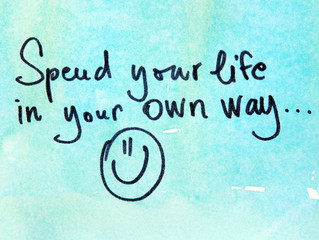 Spend your life
in your own way...